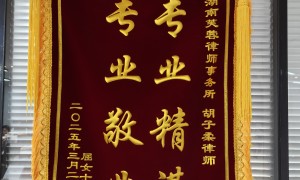 湖南芙蓉律师事务所 胡子柔律师
专业精湛
专业敬业
二〇二五年三月二
屈女士